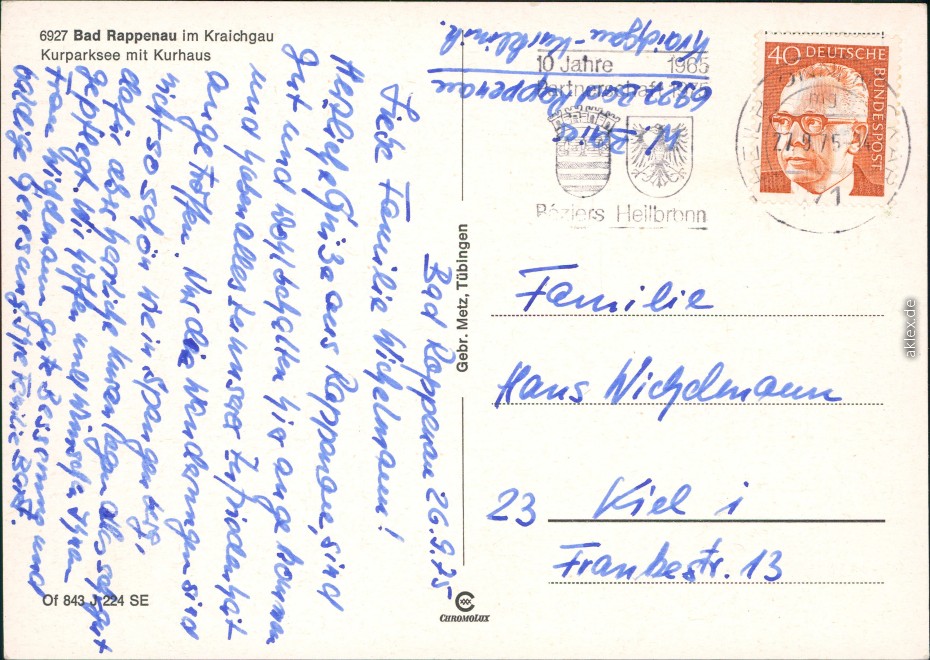 6927 Bad Rappenau im Kraichgau
Kurparksee mit Kurhaus
Bad Rappenau 26.9.75
Liebe Familie Wichelmann!
Herzliche Grüße aus Rappenau, sind
gut und wohlbehalten hier angekommen
und haben alles zu unserer Zufriedenheit
angetroffen. Nur die Wanderungen sind
nicht so schön wie in Spangenberg,
dafür aber herrliche Kuranlagen alles sehr gut
gepflegt. Wir hoffen und wünschen Ihnen
Frau Wichelmann gute Besserung und
baldige Genesung. Ihre Familie
Of 843 J 224 SE
Gebr. Metz, Tübingen
CHROMOLUX
6922 Bad Rappenau
Kraichgau-Kurklinik
10 Jahre 1965
Partnerschaft
Béziers Heilbronn
40 DEUTSCHE BUNDESPOST
27.9.75
71
Familie
Hans Wichelmann
23 Kiel 1
Frankestr. 13
aklex.de